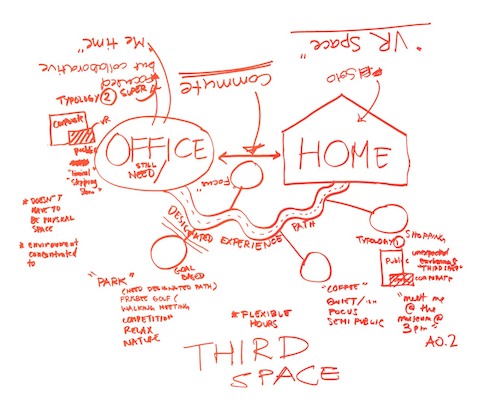 "VR Space"
"Me time"
but collaborative
focused
SUPER
TYPOLOGY 2
Commute
SOLO
CORPORATE
VR
public
"Travel
shopping
OFFICE
STILL
NEED
HOME
"FOCUS"
DESIGNATED EXPERIENCE PATH
# DOESN'T
HAVE TO
BE PHYSICAL
SPACE
# environment
concentrated
to
GOAL
BASED
"PARK"
(NEED DESIGNATED PATH)
FRISBEE GOLF (
WALKING MEETING
COMPETITION
RELAX
NATURE
# FLEXIBLE
HOURS
"COFFEE"
QUIET/
FOCUS
SEMI PUBLIC
SHOPPING
TYPOLOGY 1
Public
unexpected
"THIRD SPACE"
CORPORATE
"meet me
@ the
museum @
3pm"
A0.2
THIRD
SPACE